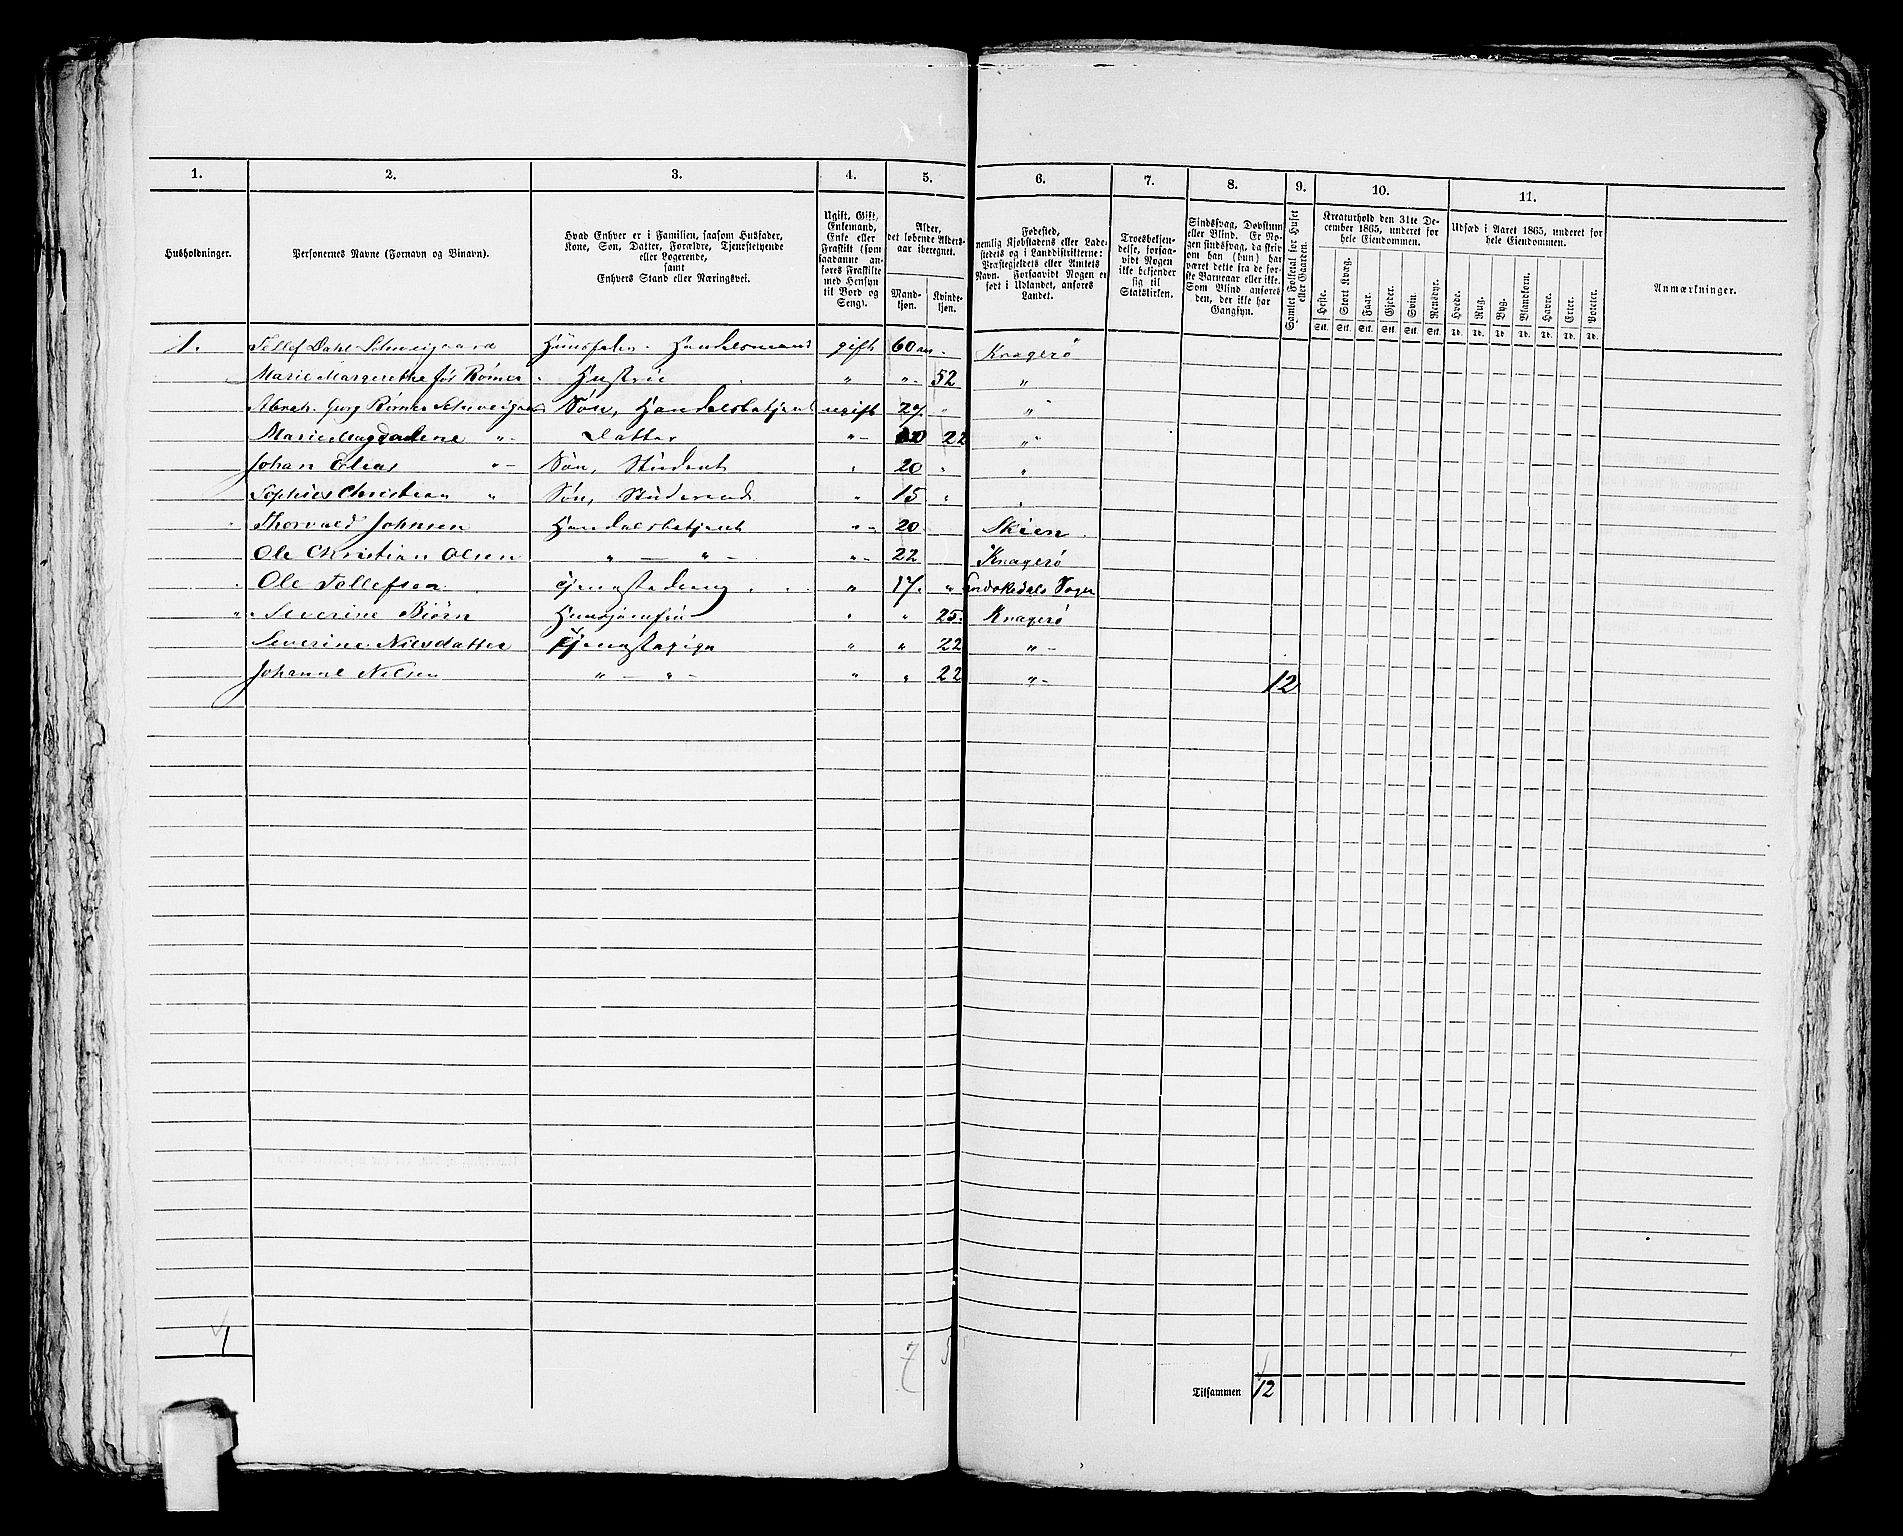 1. 2. 3. 4. 5. 6. 7. 8. 9. 10. 11.
Husholdninger.
Personernes Navne (Fornavn og Binavn).
Hvad Enhver er i Familien, saasom Husfader,
Kone, Søn, Datter, Forældre, Tjenestetyende
eller Logerende,
samt
Enhvers Stand eller Næringsvei.
Ugift, Gift,
Enkemand,
Enke eller
Fraskilt (som
saadanne anføres
Fraskilte
med Hensyn
til Bord og
Seng).
Alder,
det løbende Aldersaar
iberegnet.
Mandkjøn.
Kvindekjøn.
Fødested,
nemlig Kjøbstadens eller Ladestedets
og i Landdistrikterne:
Præstegjeldets eller Amtets
Navn. Forsaavidt Nogen er
født i Udlandet, anføres
Landet.
Troesbekjendelse,
forsaavidt
Nogen
ikke bekjender
sig til
Statskirken.
Sindssvag, Døvstum
eller Blind. Er Nogen
sindssvag, da skrives
om han (hun) har
været dette fra de første
Barneaar eller ikke.
Som Blind anføres
den, der ikke har
Gangsyn.
Samlet Folketal for Huset
eller Gaarden.
Kreaturhold den 31te December
1865, underet for
hele Eiendommen.
Heste. Stort Kvæg. Faar. Gjeder. Svin. Rensdyr.
Stk. Stk. Stk. Stk. Stk. Stk.
Udsæd i Aaret 1865, underet for
hele Eiendommen.
Hvede. Rug. Byg. Blandkorn. Havre. Erter. Poteter.
Td. Td. Td. Td. Td. Td. Td.
Anmærkninger.
1. Tellef Dahl Schweigaard Huusfader. Handelsmand gift 60 Kragerø
Marie Margerethe før Rømer Hustrue " " 52 "
Abrah. Georg Rømer Schweigaard Søn, Handelsbetjent ugift 27 " "
Marie Magdalene " Datter " 22 "
Johan Elias " Søn, Student " 20 " "
Sophus Christian " Søn, Studerende " 15 " "
Thorvald Johnsen Handelsbetjent " 20 Skien
Ole Christian Olsen " — " — " 22 Kragerø
Ole Tellefsen Tjenestedreng " 17 " Sandøkedals Sogn
Severine Biørn Huusjomfru " " 25 Kragerø
Severine Nielsdatter Tjenestepige " " 22 "
Johanne Nilsen " — " — " " 22 " 12
1 7 5
Tilsammen 12